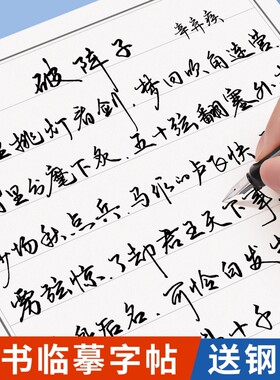 破阵子
辛弃疾
里挑灯看剑.梦回吹角连营
里分麾下炙.五十弦翻塞外
沙场秋点兵.马作的卢飞快
雳弦惊.了却君王天下事
后名.可怜白发生
书临摹字帖 送钢